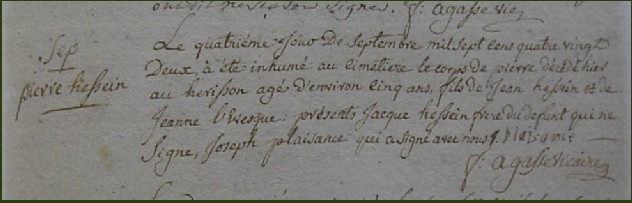 ont dit ne savoir signer. f. agasse vic.
Sep
pierre hessein
Le quatriéme Jour De septembre mil sept cens quatre vingt
Deux, à été inhumé au cimetiere le corps de pierre décédé hier
au herisson agé d'environ cinq ans, fils de Jean hessein et de
Jeanne L'Evesque. présents Jacque hessein frere du defunt qui ne
signe, Joseph plaisance qui a signé avec nous J. plaisance
f. agasse vicaire